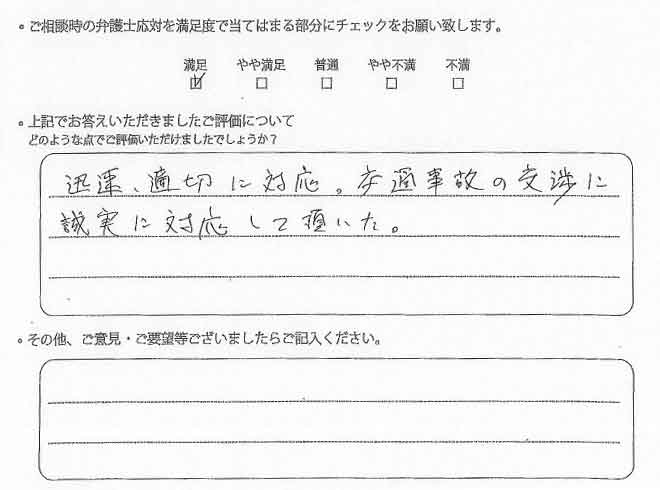 。ご相談時の弁護士応対を満足度で当てはまる部分にチェックをお願い致します。
満足 やや満足 普通 やや不満 不満
☑ □ □ □ □
。上記でお答えいただきましたご評価について
どのような点でご評価いただけましたでしょうか？
迅速、適切に対応。交通事故の交渉に
誠実に対応して頂いた。
。その他、ご意見・ご要望等ございましたらご記入ください。